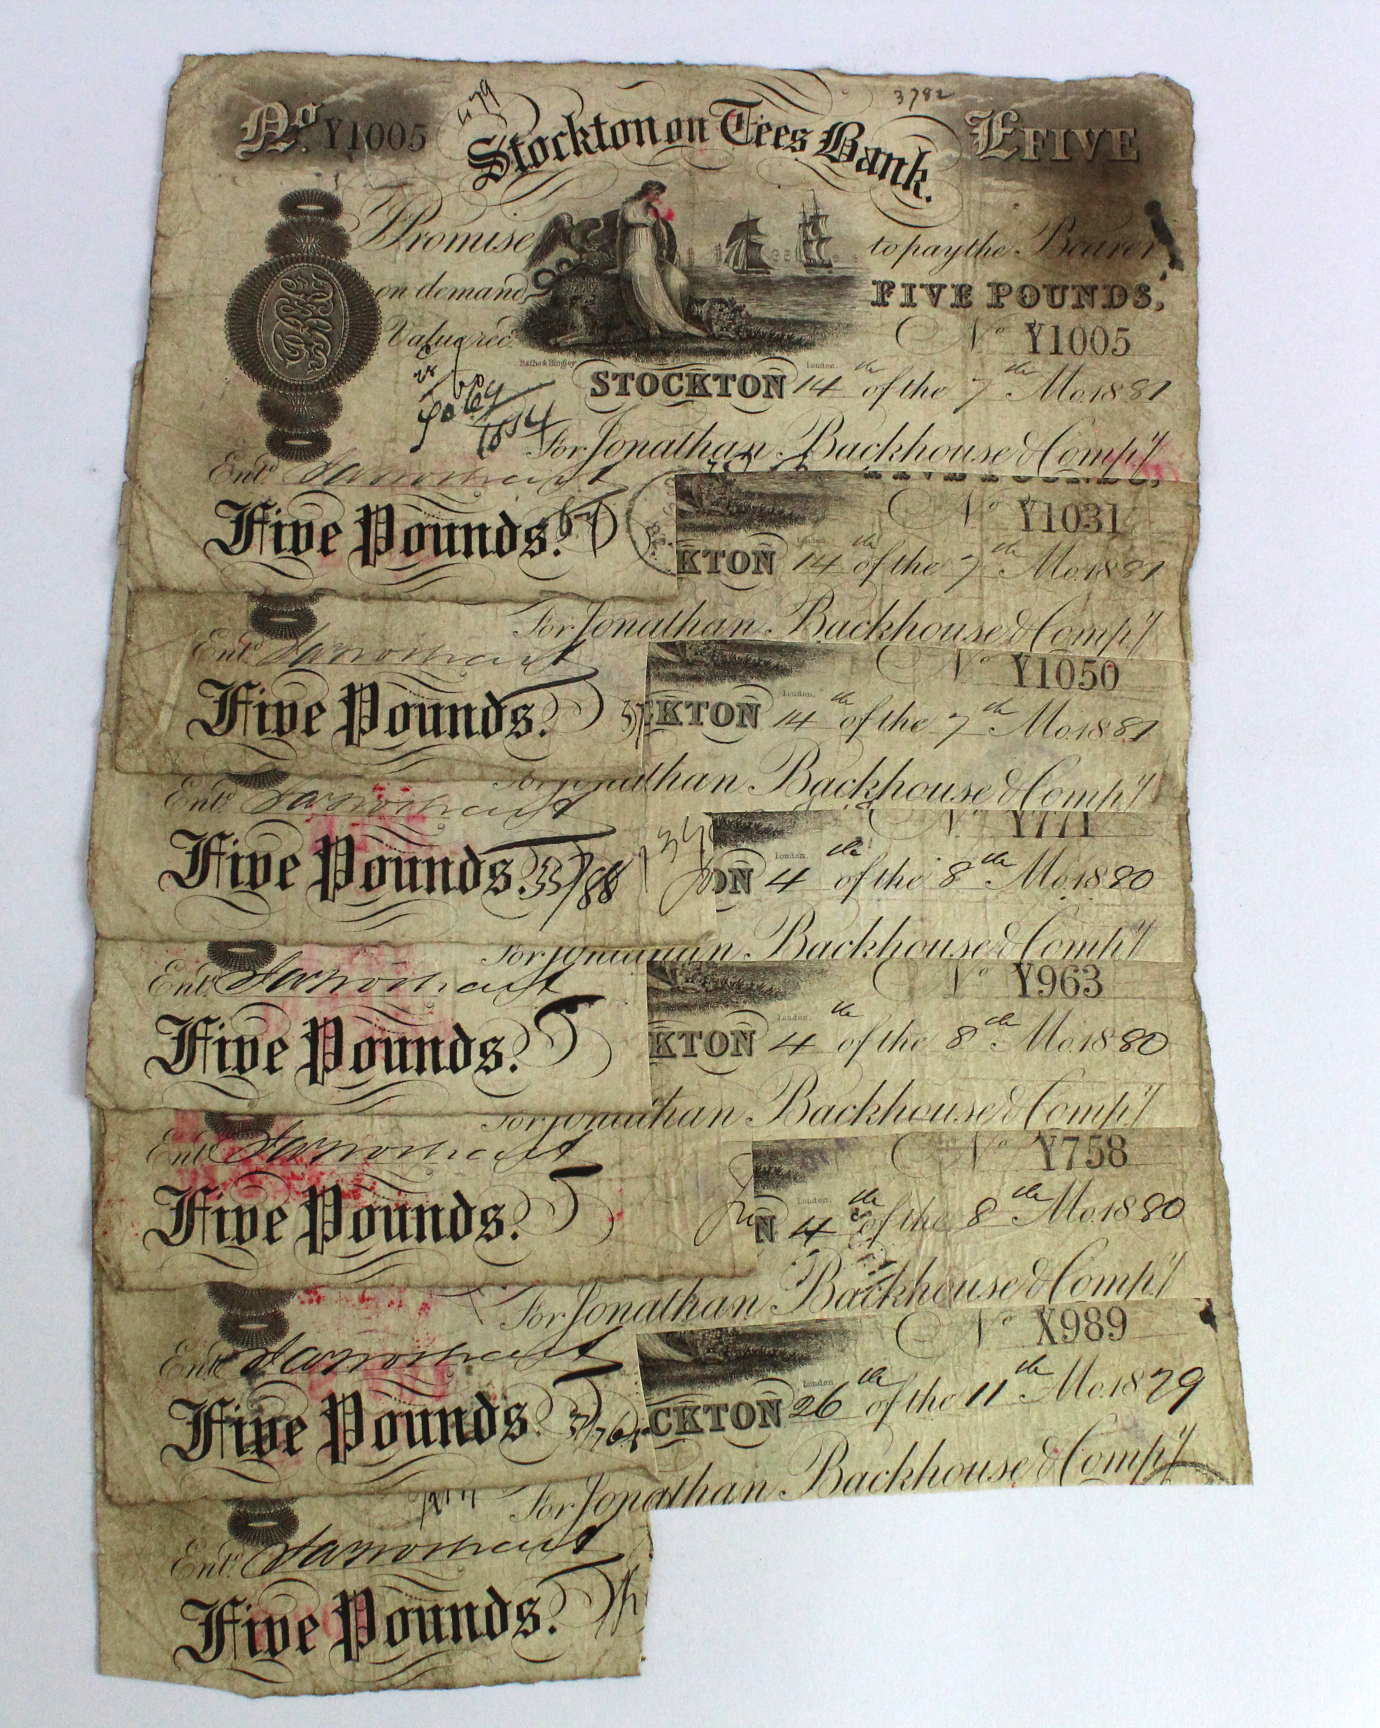 No. Y1005
479
3782
Stockton on Tees Bank.
£FIVE
I Promise to pay the Bearer
on demand FIVE POUNDS,
Value recd. No Y1005
STOCKTON 14th of the 7th Mo. 1881
London.
For Jonathan Backhouse & Compy
Entd
Five Pounds.
FIVE POUNDS,
No Y1031
London.
KTON 14th of the 7th Mo. 1881
For Jonathan Backhouse & Compy
Entd
Five Pounds.
No Y1050
London.
CKTON 14th of the 7th Mo. 1881
For Jonathan Backhouse & Compy
Entd
Five Pounds. 33/88
No Y771
London.
ON 4th of the 8th Mo. 1880
For Jonathan Backhouse & Compy
Entd
Five Pounds.
No Y963
London.
KTON 4th of the 8th Mo. 1880
For Jonathan Backhouse & Compy
Entd
Five Pounds.
No Y758
London.
N 4th of the 8th Mo. 1880
For Jonathan Backhouse & Compy
Entd
Five Pounds.
No X989
London.
CKTON 26th of the 11th Mo. 1879
For Jonathan Backhouse & Compy
Entd
Five Pounds.